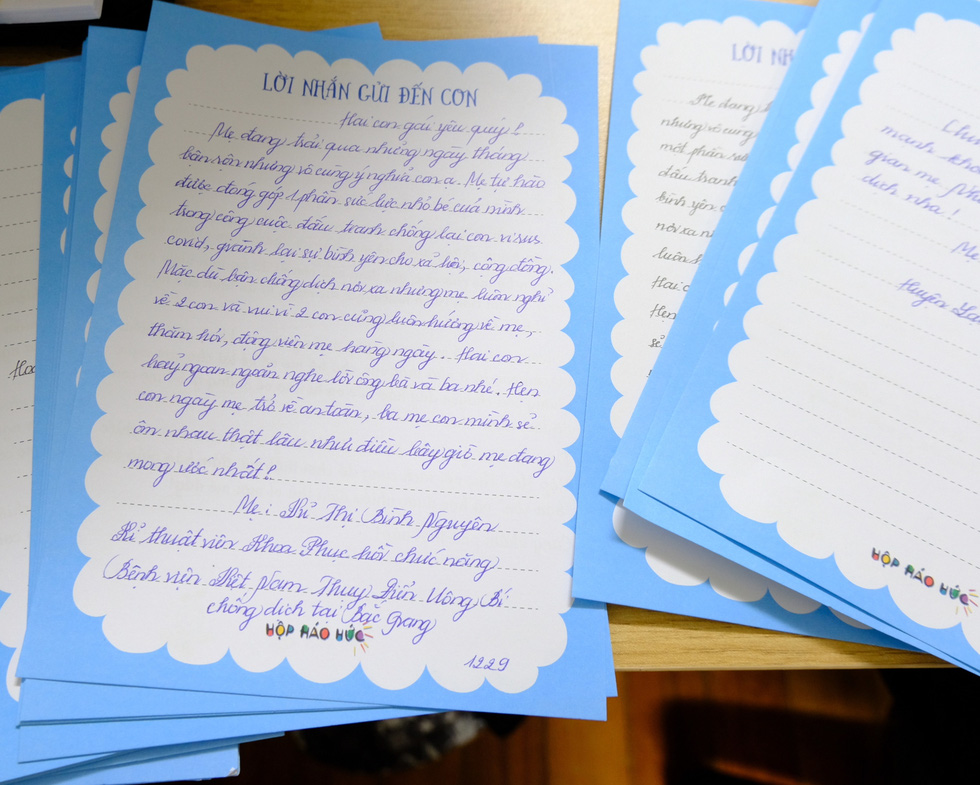 LỜI NHẮN GỬI ĐẾN CON
Hai con gái yêu quý!
Mẹ đang trải qua những ngày tháng
bận rộn nhưng vô cùng ý nghĩa con ạ. Mẹ tự hào
được đóng góp 1 phần sức lực nhỏ bé của mình
trong công cuộc đấu tranh chống lại con virus
covid, giành lại sự bình yên cho xã hội, cộng đồng.
Mặc dù bận chống dịch nơi xa nhưng mẹ luôn nghĩ
về 2 con và vui vì 2 con cũng luôn hướng về mẹ,
thăm hỏi, động viên mẹ hàng ngày. Hai con
hãy ngoan ngoãn nghe lời ông bà và ba nhé. Hẹn
con ngày mẹ trở về an toàn, ba mẹ con mình sẽ
ôm nhau thật lâu như điều bây giờ mẹ đang
mong ước nhất!
Mẹ: Thị Bình Nguyên
Kĩ thuật viên Khoa Phục hồi chức năng
Bệnh viện Việt Nam Thụy Điển Uông Bí
chống dịch tại Bắc Giang
HỘP HÁO HỨC
1229
LỜI NH
Mẹ đang
nhưng vô cùng
một phần sức
đấu tranh
bình yên
nơi xa
luôn
Hai c
Hẹn
sẽ
manh
gian mẹ
dịch nha!
Mẹ
Huyền
HỘP HÁO HỨC